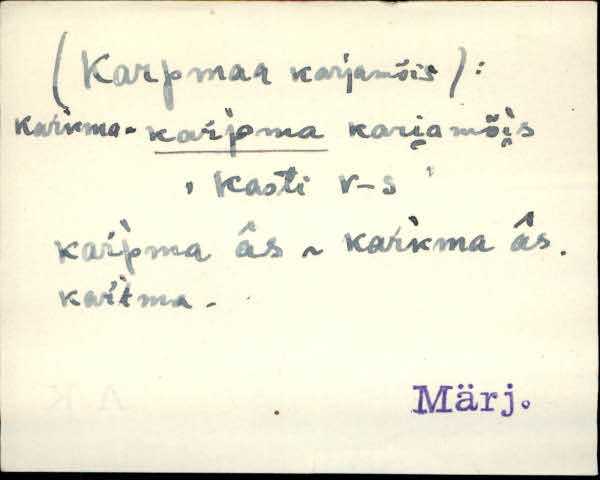 (Karpmaa karjamõis):
karkma- kar̀pma kari̯amõi̯s
, Kasti v-s ʼ
kar̀pma âs ~ kar̀kma âs.
kar̀tma -
Märj.